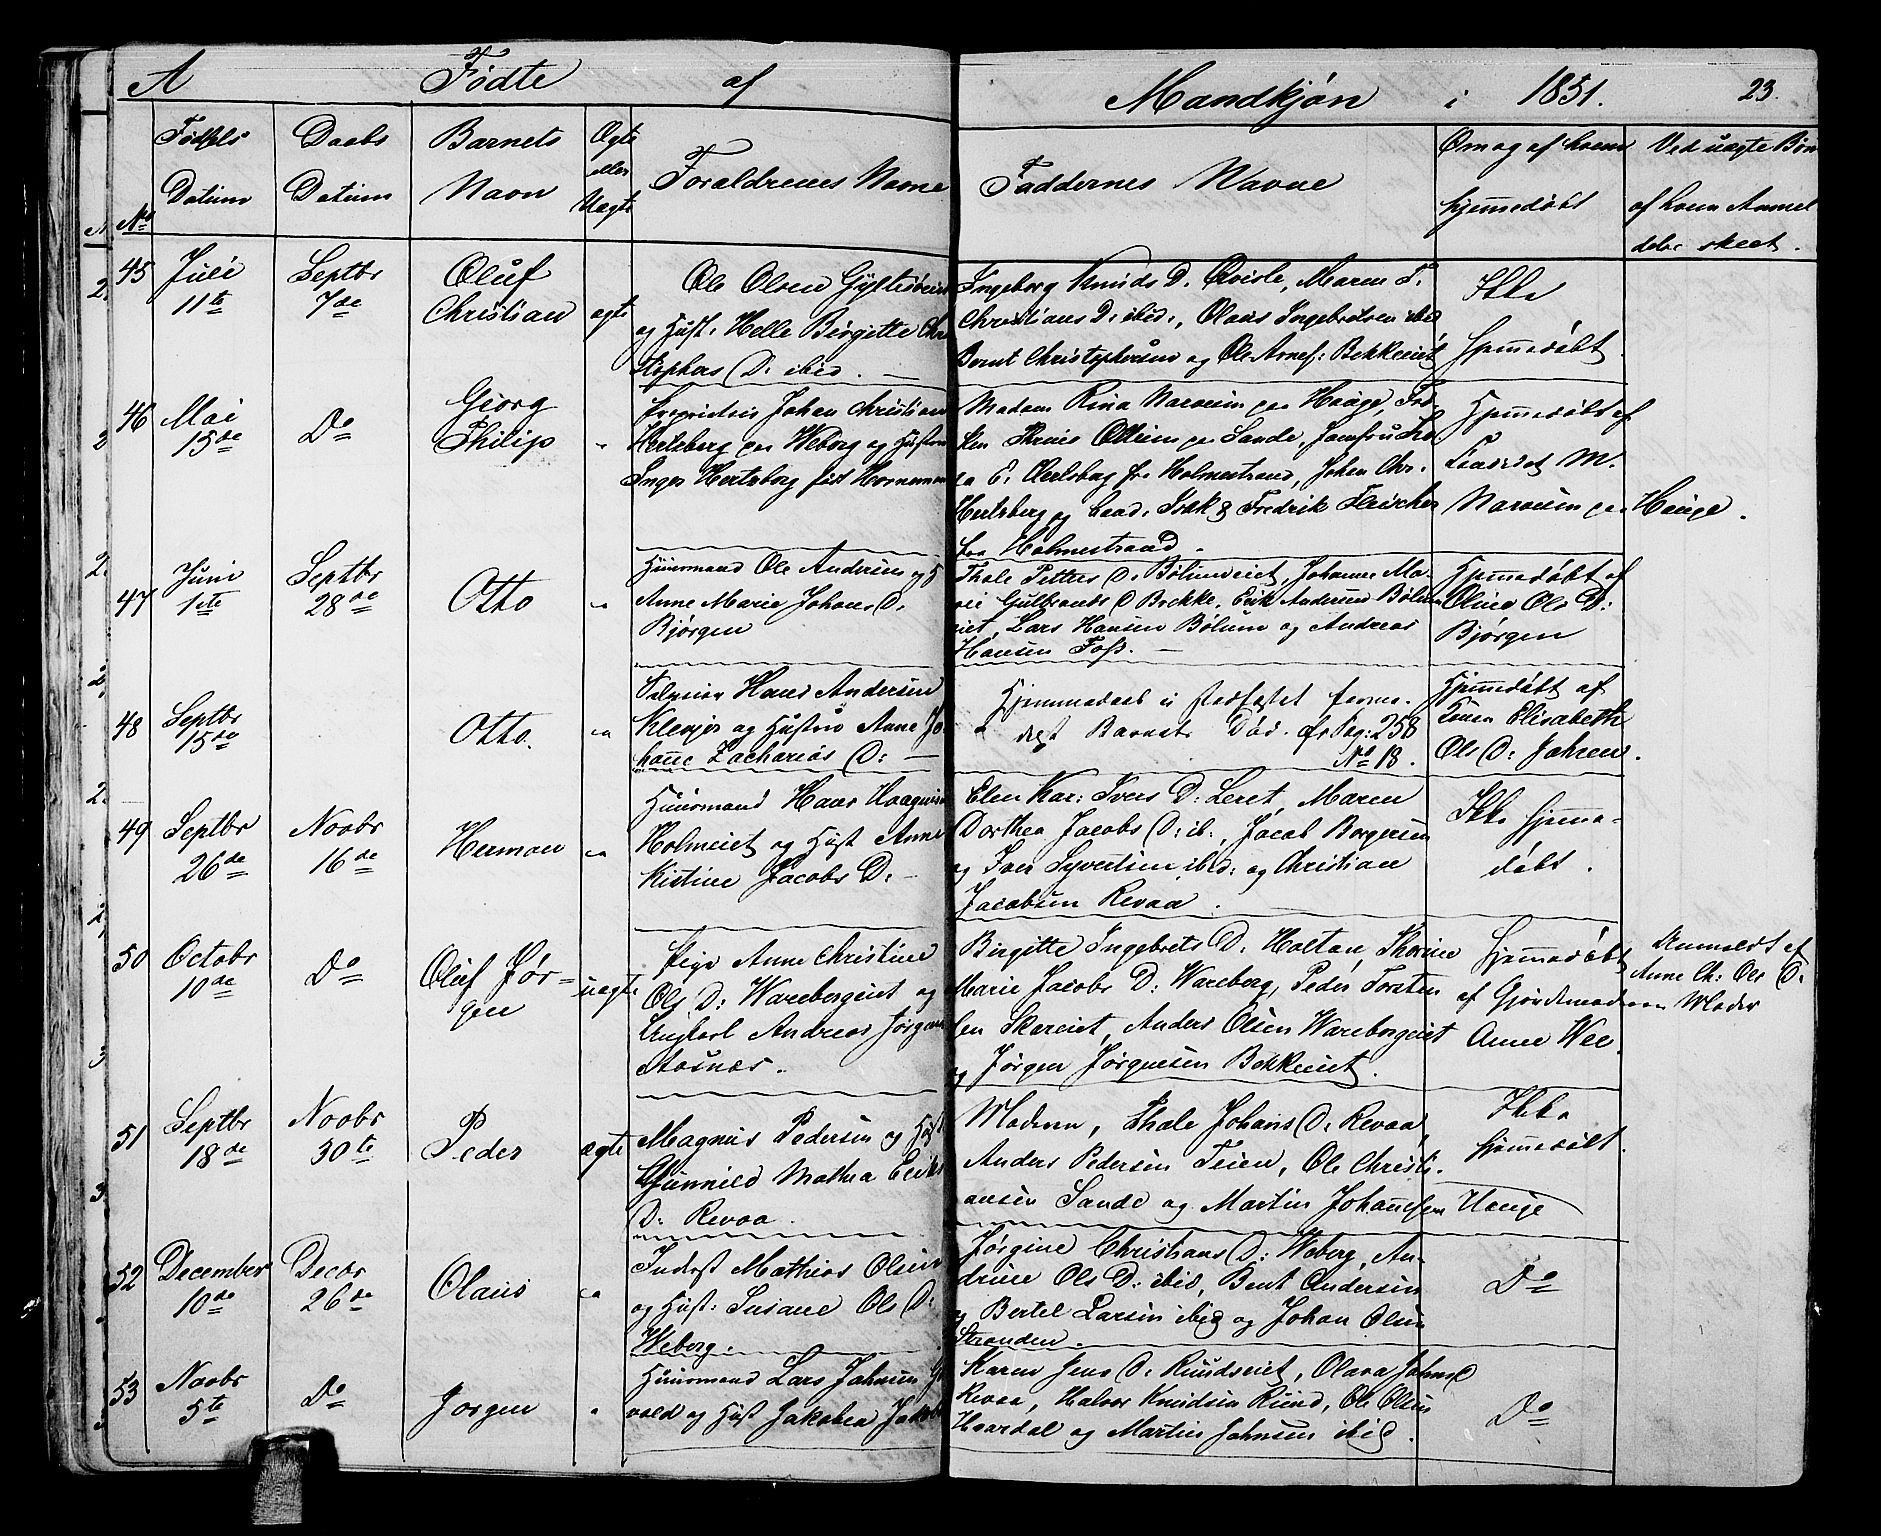 A Fødte af Mandkjøn i 1851. 23.
No Fødsels Datum Daabs Datum Barnets Navn Ægte eller Uægte Forældrenes Navne Faddernes Navne Om og af hvem hjemmedøbt Ved uægte Børn af hvem Anmeldelse skeet.
45 Juli 11te Septbr 7de Oluf Christian ægte
Ole Olsen
og Hust: Helle Birgitte Chri
stophers D: ibid. —
Ingeborg Knuds D. Qvisle, Maren
Christians D. ibid:, Olaus Ingebretsen ibid
Bernt Christophersen og Ole Arnes: Bekkeeiet
Ikke
hjemmedøbt.
46 Mai 15de Do Georg Philip "
Proprietær Johan Christian
Herlsberg paa Weborg og Hustru
Inger Hertsberg født Hornemann
Madam Rina Narvesen paa Hauge, Frø-
ken Ottesen paa Sande, Jomfru
E. Herlsberg fra Holmestrand, Johan Chr.
Herlsberg og Cand. Fredrik Fleischer
fra Holmestrand.
Hjemmedøbt af
M.
Narvesen paa Hauge.
47 Juni 1ste Septbr 28de Otto "
Huusmand Ole Andersen og
Anne Marie Johans D:
Bjørgen
Thale Petters D. Bølumeiet, Johanne Ma-
rie Gulbrands D Brekke, Erik Andersen Bølum
eiet, Lars Hansen Bølum og Andreas
Hansen Foss. —
Hjemmedøbt af
Oline Ols D:
Bjørgen
48 Septbr 15de Otto. "
Hans Andersen
Klevjer og Hustru Anne Jo
hanne Zacharias D: —
Hjemmedaab ei stadfæstet forme-
delst Barnets Død. cfr Pag: 258
No 18.
Hjemmedøbt af
Konen Elisabeth
Ols D: Jahren.
49 Septbr 26de Novbr 16de Herman "
Huusmand Hans Haagensen
Holmeiet og Hust Anne
Kistine Jacobs D: —
Elen Kar: Ivers D: Leret, Maren
Dorthea Jacobs D: ib:, Jacob Borgersen
og Iver Syvertsen ibid: og Christian
Jacobsen Revaa.
Ikke hjemme-
døbt.
50 Octobr 10de Do Oluf Jør-
gen uægte
Pige Anne Christine
Ols D: Warebergeiet og
Ungkarl Andreas Jørgens
Aasnæs.
Birgitte Ingebrets D: Holtan, Thorine
Marie Jacobs D: Wareberg, Peder Torsten
sen Skeeiet, Anders Olsen Warebergeiet
og Jørgen Jørgensen Bekkeeiet.
Hjemmedøbt
af Gjordemoderen
Anne Wee.
Anmeldt af
Anne Ch: Ols D:
Moder
51 Septbr 18de Novbr 30te Peder ægte
Magnus Pedersen og Hust
Gunnild Mathea Eriks
D: Revaa.
Moderen, Thale Johans D: Revaa,
Anders Pedersen Teien, Ole Christi-
ansen Sande og Martin Johannesen Hauge
Ikke
hjemmedøbt.
52 December 10de Decbr 26de Olaus "
Inderst Mathias Olsen
og Hust: Susane Ols D:
Weborg.
Jørgine Christians D: Weborg, An-
drine Ols D: ibid, Bent Andersen
og Bertel Larsen ibid og Johan Olsen
Stranden.
Do
53 Novbr 5te Do Jørgen "
Huusmand Lars Johnsen
vold og Hust Jakobea Jakobs
Karen Jens D: Ruudseiet, Olava Johns D
Revaa, Halvor Knudsen Ruud, Ole Olsen
Haardal og Martin Johnsen ibid.
Do